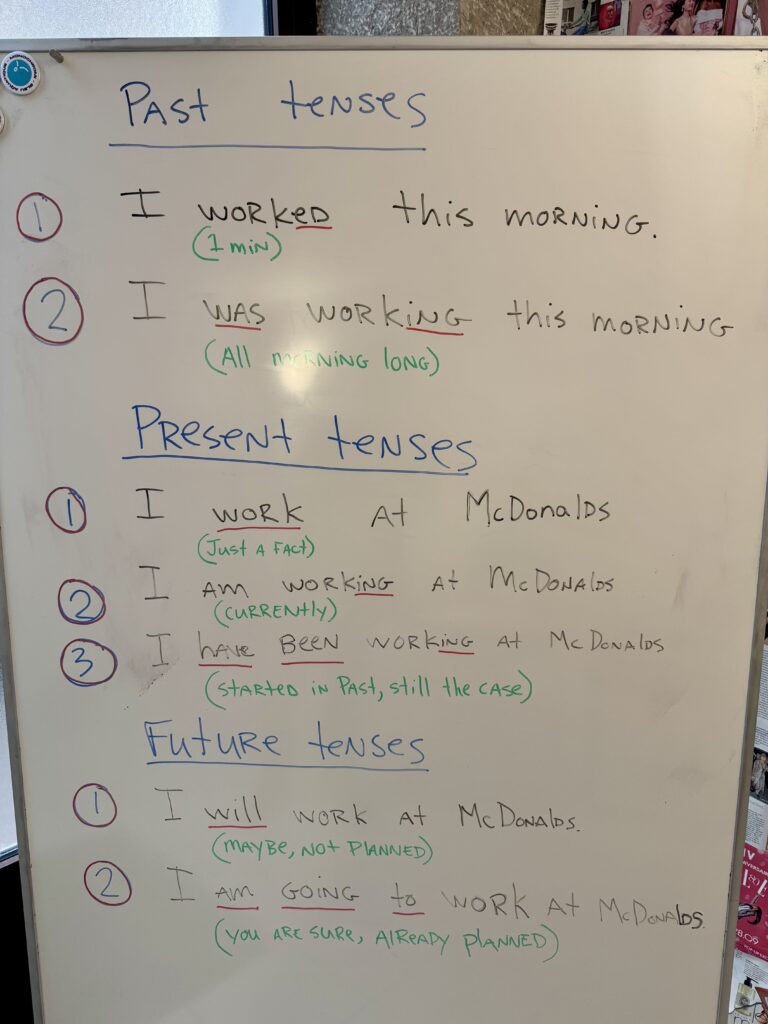 Past tenses
1 I worked this morning.
(1 min)
2 I was working this morning
(All morning long)
Present tenses
1 I work at McDonalds
(Just a fact)
2 I am working at McDonalds
(currently)
3 I have been working at McDonalds
(started in past, still the case)
Future tenses
1 I will work at McDonalds.
(maybe, not planned)
2 I am going to work at McDonalds.
(you are sure, already planned)